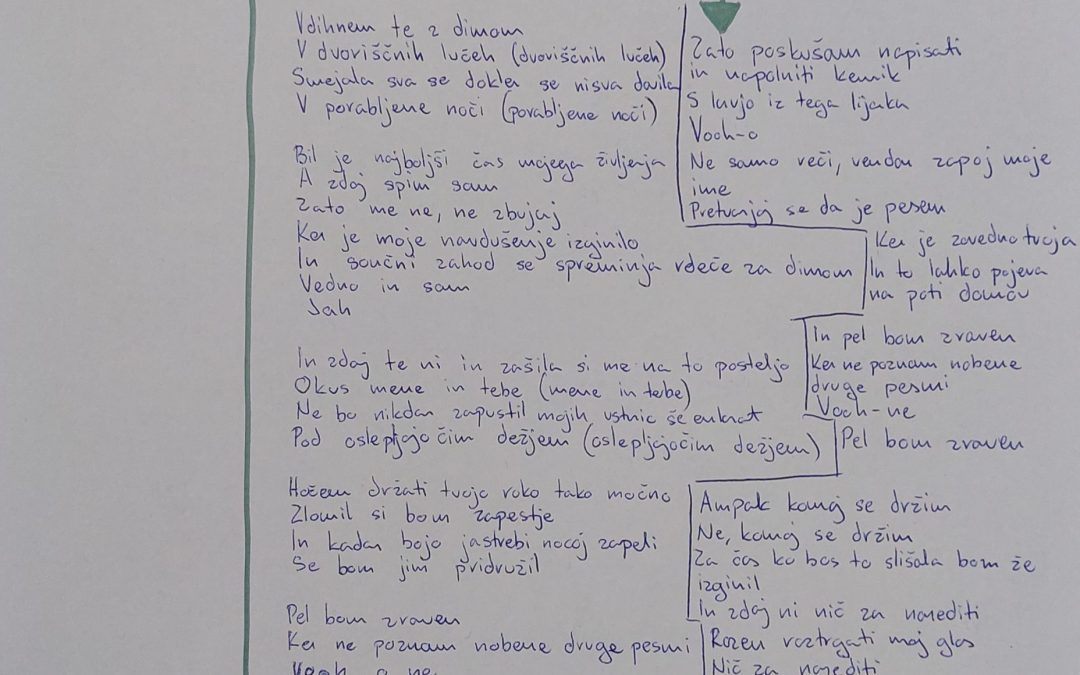 Vdihnem te z dimom
V dvoriščnih lučeh (dvoriščnih lučeh)
Smejala sva se dokler se nisva davila
V porabljene noči (porabljene noči)
Bil je najboljši čas mojega življenja
A zdaj spim sam
Zato me ne, ne zbujaj
Ker je moje navdušenje izginilo
In sončni zahod se spreminja rdeče za dimom
Vedno in sam
Jah
In zdaj te ni in zašila si me na to posteljo
Okus mene in tebe (mene in tebe)
Ne bo nikdar zapustil mojih ustnic še enkrat
Pod oslepljajočim dežjem (oslepljajočim dežjem)
Hočem držati tvojo roko tako močno
Zlomil si bom zapestje
In kadar bojo jastrebi nocoj zapeli
Se bom jim pridružil
Pel bom zraven
Ker ne poznam nobene druge pesmi
Vooh-o ne
Zato poskušam napisati
in napolniti kemik
S krvjo iz tega lijaka
Vooh-o
Ne samo reči, vendar zapoj moje
ime
Pretvarjaj se da je pesem
Ker je zavedno tvoja
In to lahko pojeva
na poti domov
In pel bom zraven
Ker ne poznam nobene
druge pesmi
Vooh-ne
Pel bom zraven
Ampak komaj se držim
Ne, komaj se držim
Za čas ko bos to slišala bom že
izginil
In zdaj ni nič za narediti
Razen raztrgati moj glas
Nič za narediti